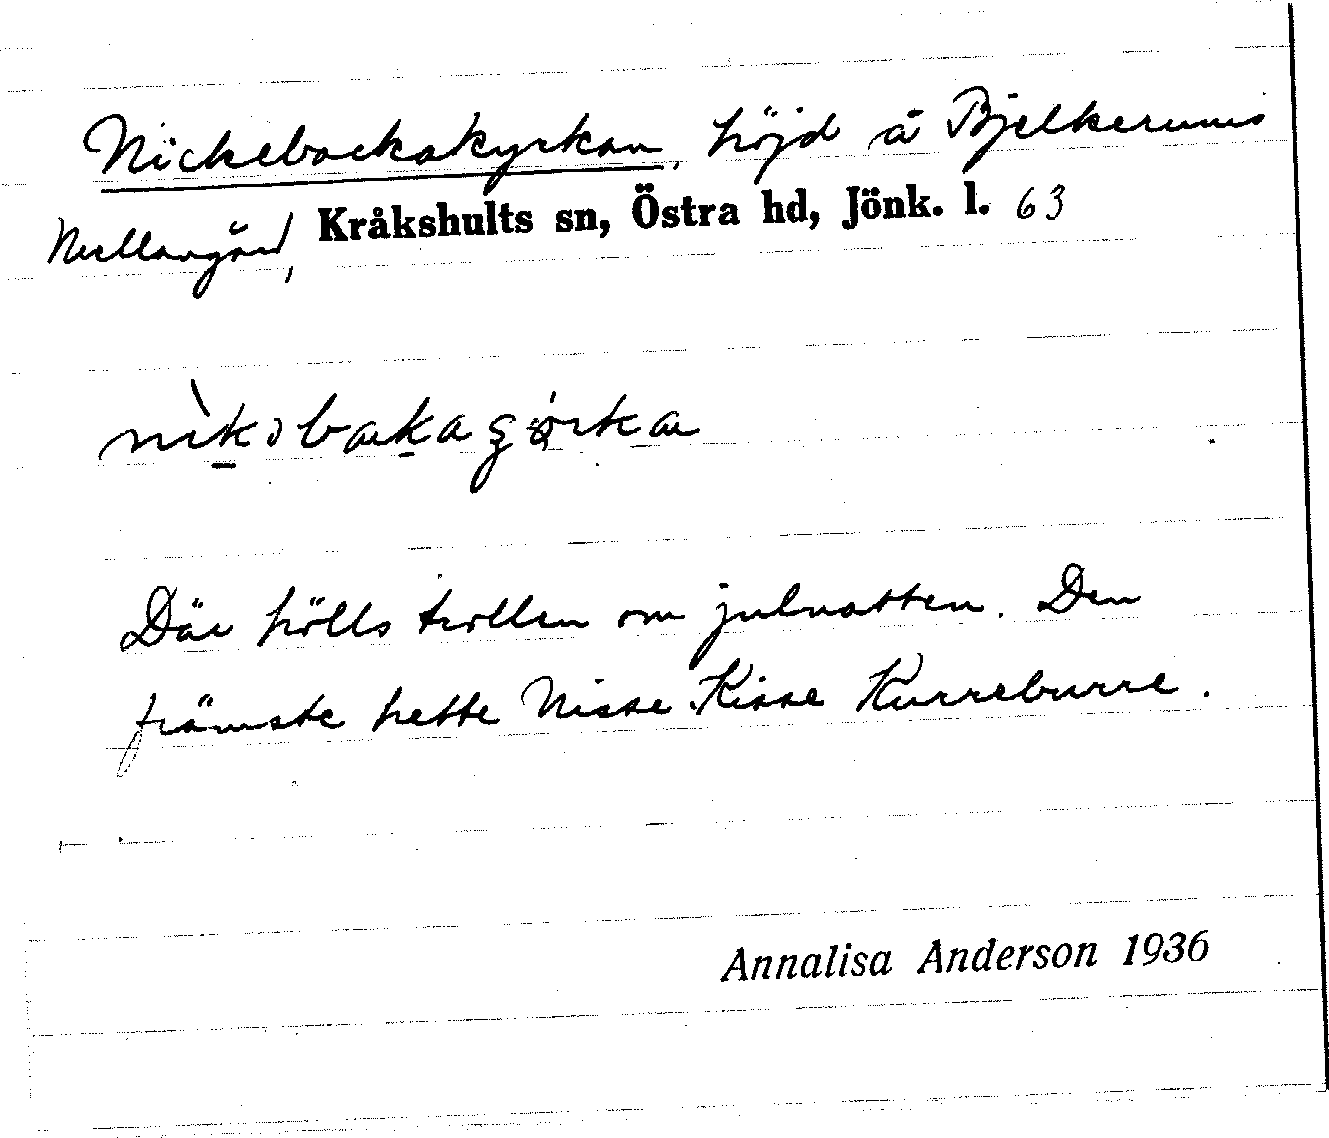 Nickebackakyrkan, höjd å Bjelkerums
Mellangård, Kråkshults sn, Östra hd, Jönk. l. 63
Där hölls trollen om julnatten. Den
främste hette Nisse Kisse Kurreburre.
Annalisa Anderson 1936